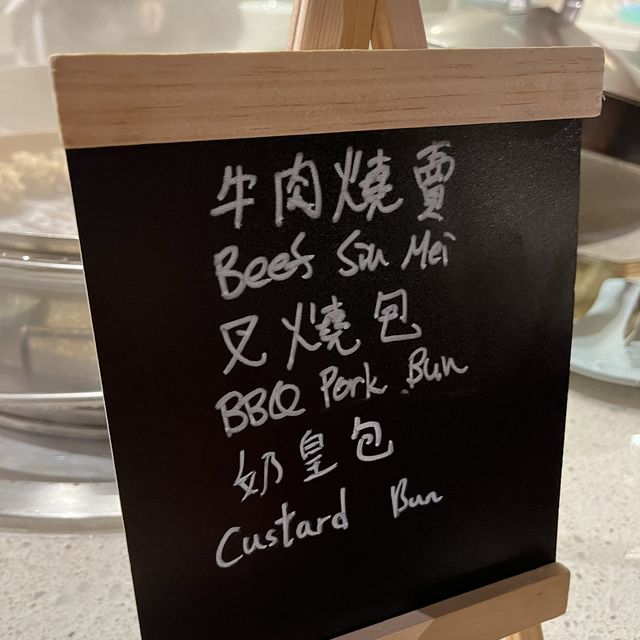 牛肉燒賣
Beef Siu Mei
叉燒包
BBQ Pork Bun
奶皇包
Custard Bun